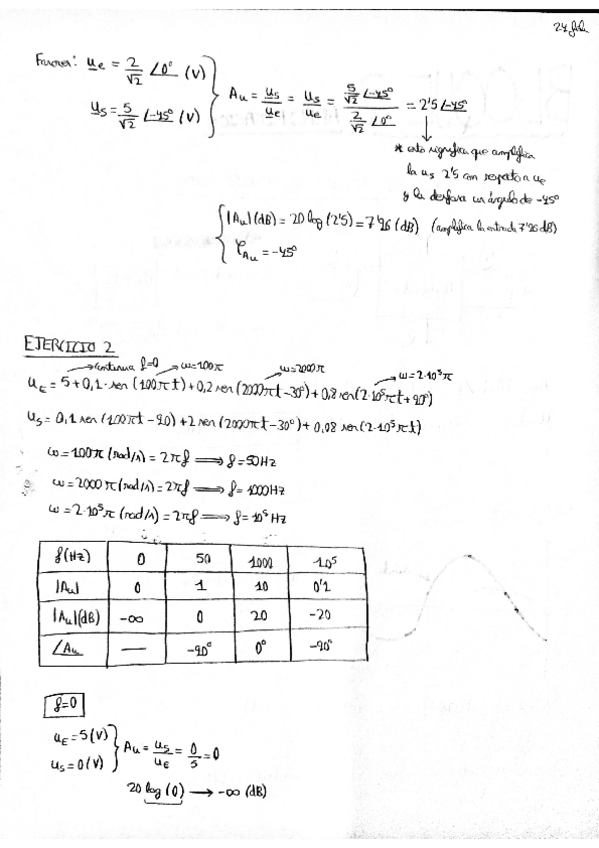 24 feb
Fasores: u̲e = 2/√2 ∠0° (V)
u̲s = 5/√2 ∠-45° (V)
Au = u̲s/u̲e = u̲s/u̲e = (5/√2 ∠-45°)/(2/√2 ∠0°) = 2'5 ∠-45°
* esto significa que amplifica
la us 2'5 con respecto a ue
y la desfasa un ángulo de -45°
|Au|(dB) = 20 log (2'5) = 7'96 (dB) (amplifica la entrada 7'96 dB)
φAu = -45°
EJERCICIO 2
continua f=0 ω=100π ω=2000π ω=2·10⁵π
uE = 5 + 0,1·sen (100πt) + 0,2 sen (2000πt-30°) + 0,8 sen (2·10⁵πt+90°)
us = 0,1 sen (100πt - 90) + 2 sen (2000πt - 30°) + 0,08 sen (2·10⁵πt)
ω = 100π (rad/s) = 2πf ⟹ f = 50Hz
ω = 2000π (rad/s) = 2πf ⟹ f = 1000Hz
ω = 2·10⁵π (rad/s) = 2πf ⟹ f = 10⁵ Hz
f(Hz) 0 50 1000 10⁵
|Au| 0 1 10 0'1
|Au|(dB) -∞ 0 20 -20
∠Au — -90° 0° -90°
f=0
uE = 5 (V)
us = 0 (V)
Au = us/uE = 0/5 = 0
20 log (0) → -∞ (dB)